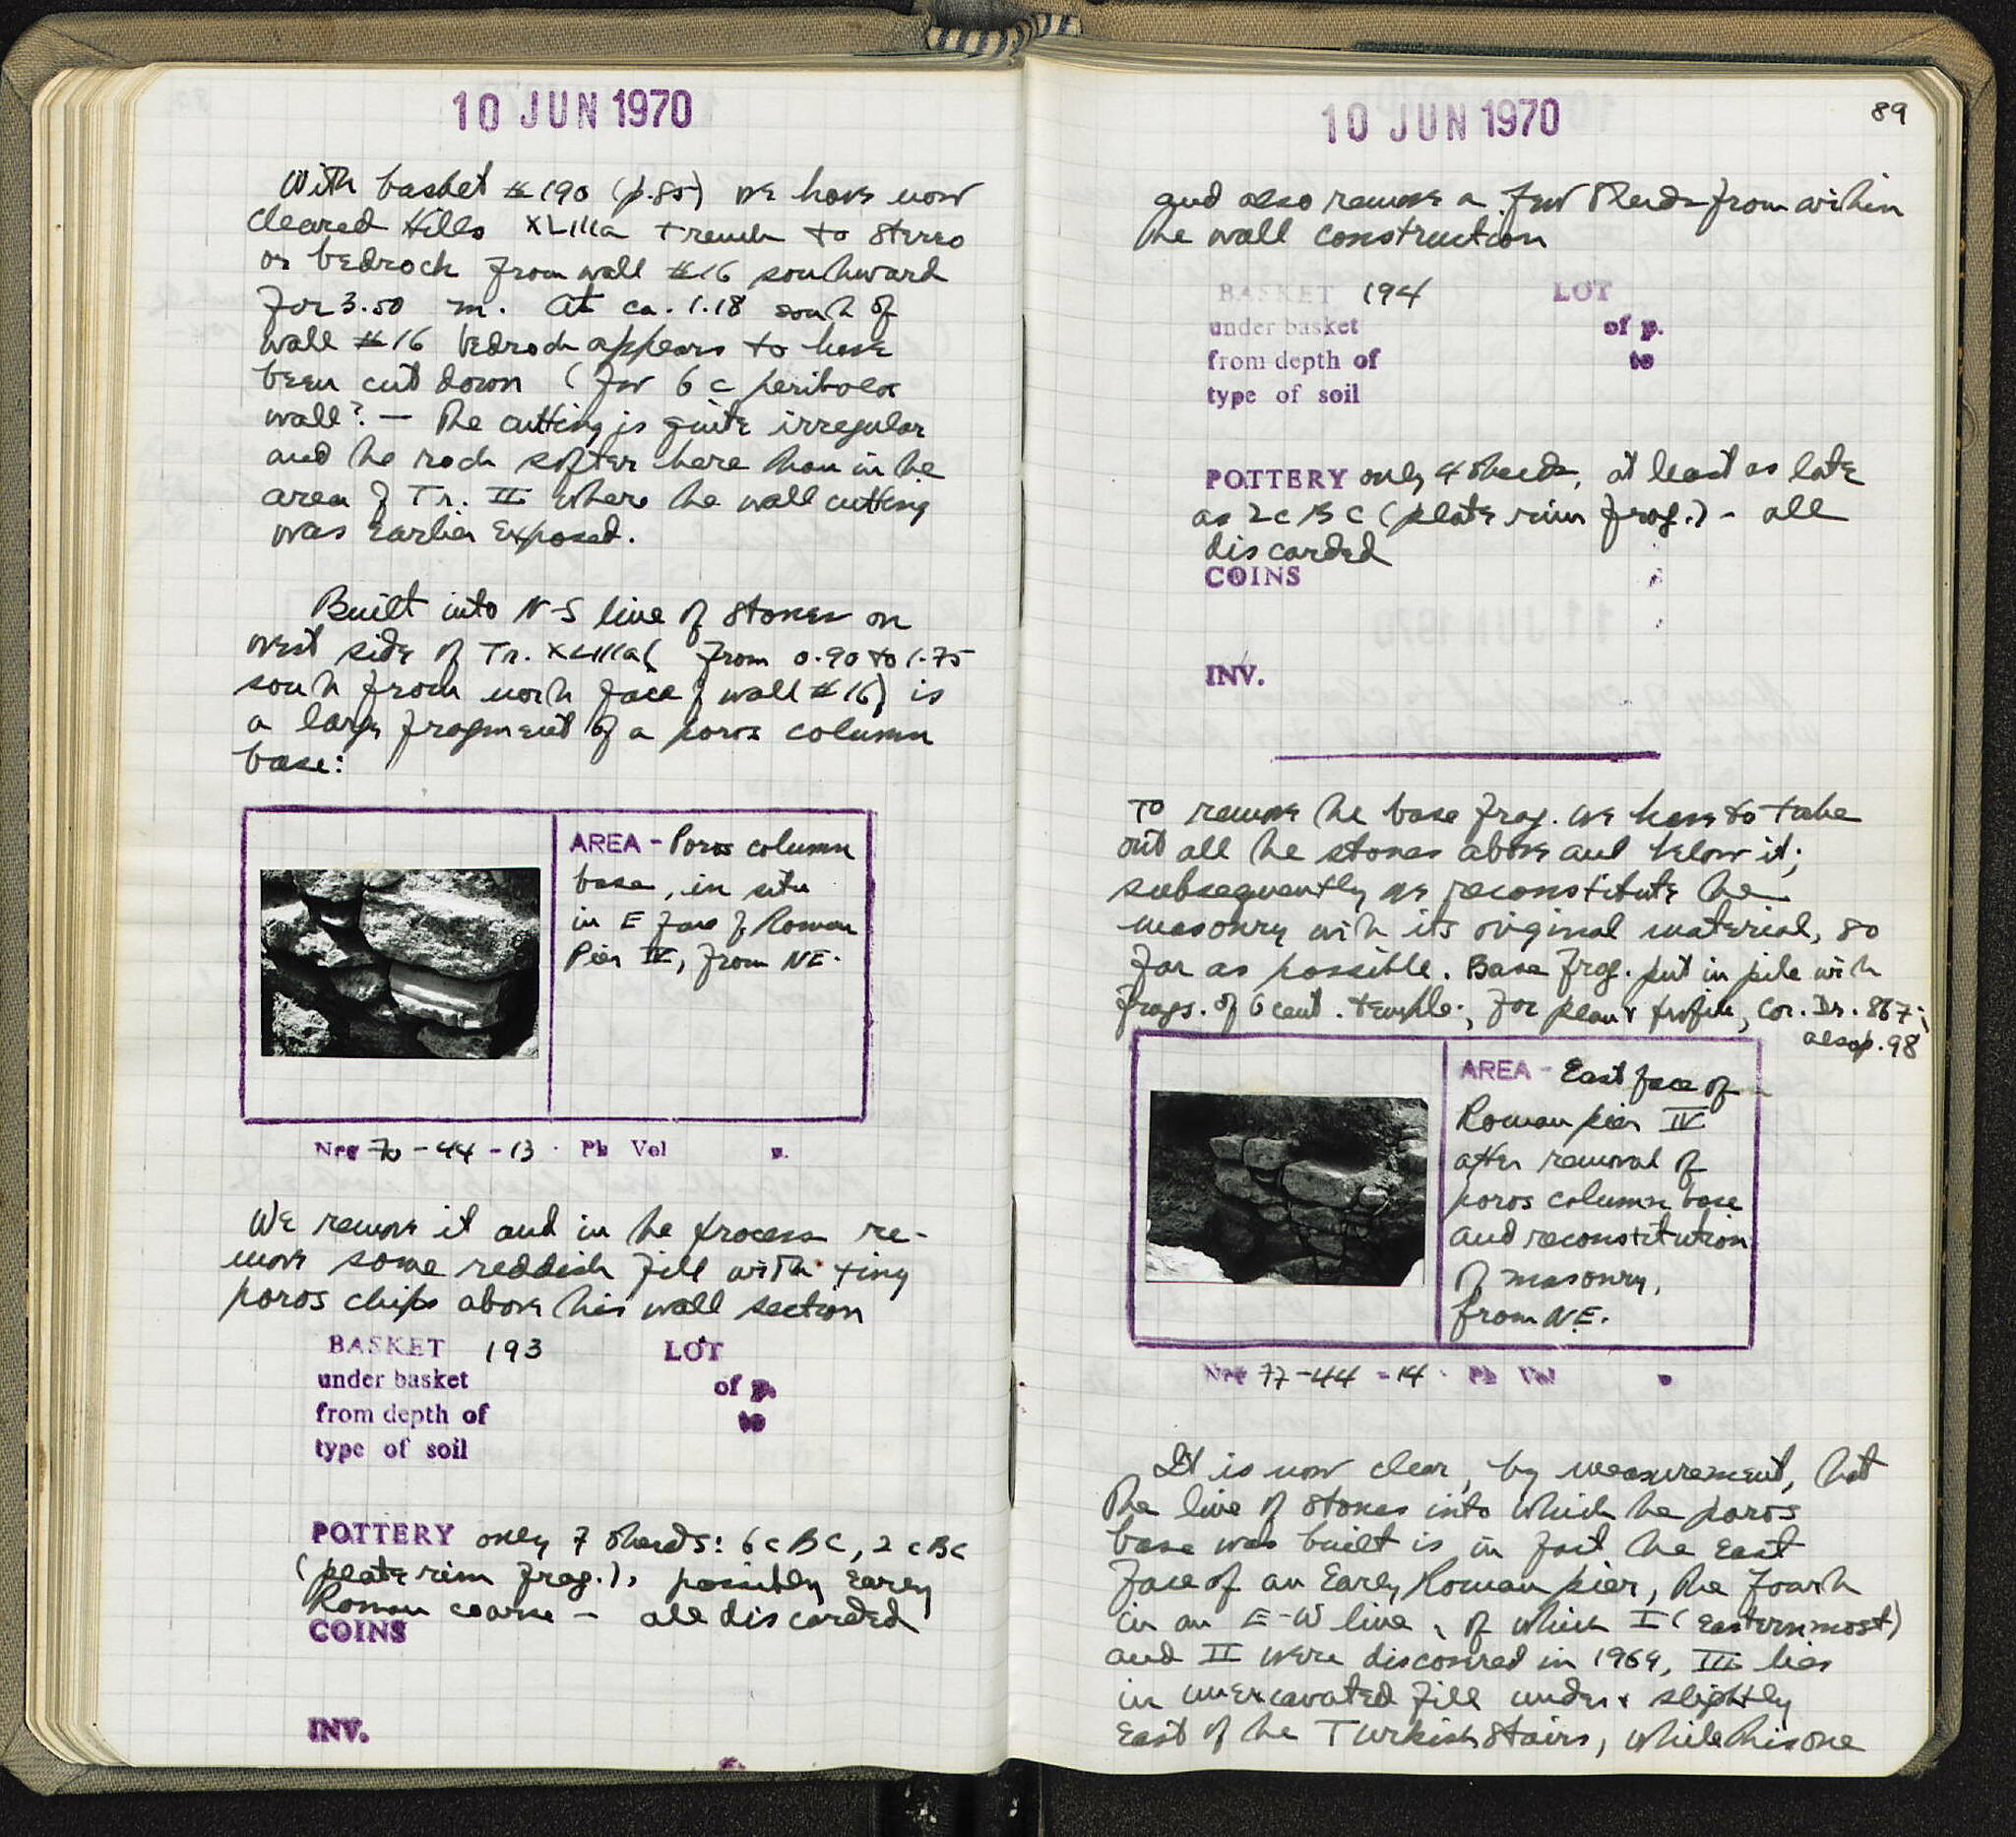 10 JUN 1970
With basket #190 (p.85) we have now
cleared Hill's XLIIIa trench to stereo
or bedrock from wall #16 southward
for 3.50 m. At ca. 1.18 south of
wall #16 bedrock appears to have
been cut down (for 6 c peribolos
wall? — The cutting is quite irregular
and the rock softer here than in the
area of Tr. II where the wall cutting
was earlier exposed.
Built into N-S line of stones on
west side of Tr. XLIIIa( from 0.90 to 1.75
south from north face of wall #16) is
a large fragment of a poros column
base:
AREA - Poros column
base, in situ
in E face of Roman
Pier IV, from NE.
Neg 70-44-13 · Ph Vol p.
We remove it and in the process re-
move some reddish fill with tiny
poros chips above this wall section
BASKET 193 LOT
under basket of p.
from depth of to
type of soil
POTTERY only 7 sherds: 6 c BC, 2 c BC
(plate rim frag.), possibly Early
Roman coarse — all discarded
COINS
INV.
10 JUN 1970
89
and also remove a few sherds from within
the wall construction
BASKET 194 LOT
under basket of p.
from depth of to
type of soil
POTTERY only 4 sherds, at least as late
as 2 c BC (plate rim frag.) - all
discarded
COINS
INV.
To remove the base frag. we have to take
out all the stones above and below it;
subsequently we reconstitute the
masonry with its original material, so
far as possible. Base frag. put in pile with
frags. of 6 cent. temple; for plan & profile, Cor. Dr. 867;
also p. 98
AREA - East face of
Roman pier IV
after removal of
poros column base
and reconstitution
of masonry,
from NE.
Neg 77-44-14 · Ph Vol p
It is now clear, by measurement, that
the line of stones into which the poros
base was built is in fact the East
face of an Early Roman pier, the fourth
in an E-W line, of which I (easternmost)
and II were discovered in 1969, III lies
in unexcavated fill under & slightly
East of the Turkish stairs, while this one